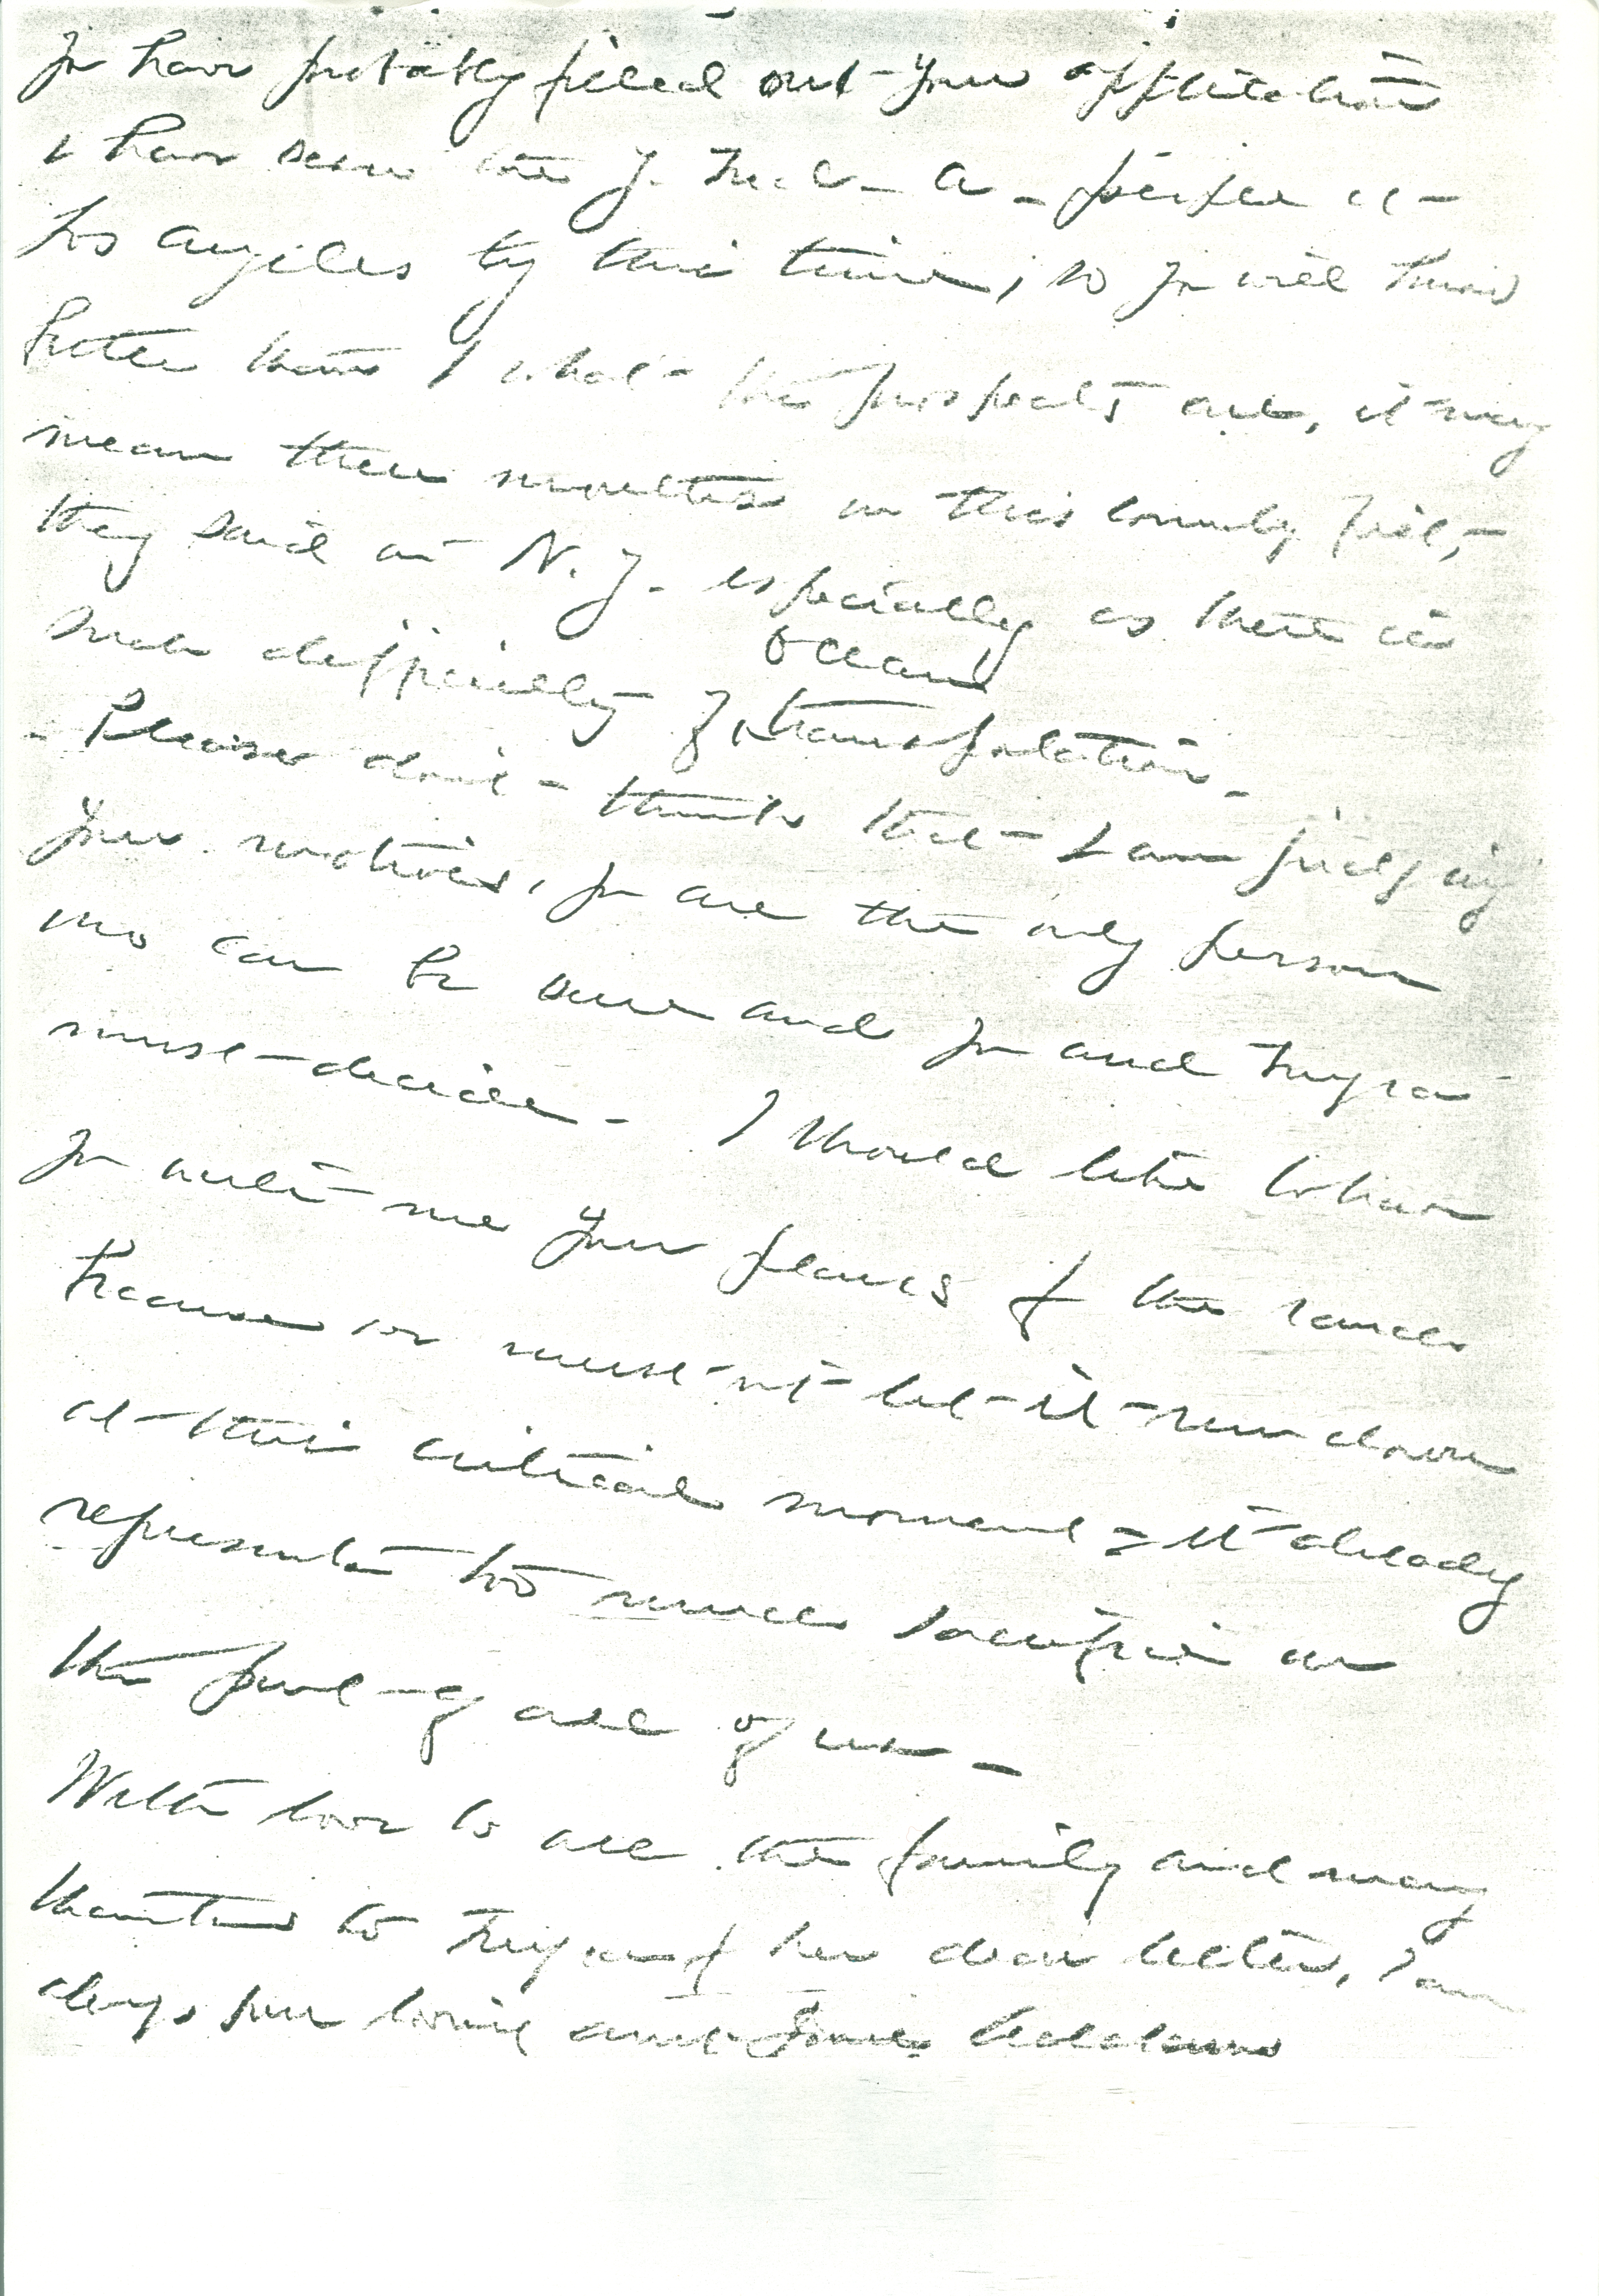 You have probably filled out your application
& have seen the Y. M. C. A. people at
Los Angeles by this time, so you will know
better than I what the prospects are, it may
mean three months in this country first,
they said in N.Y. especially as there is
such difficulty of ocean transportation.
Please don't think that I am judging
your motives, you are the only person
who can be sure and you and Myra
must decide. I should like to have
you write me your plans for the ranch
because we must not let it run down
at this critical moment = it already
represents too much sacrifice on
the part of all of us.
With love to all the family and many
thanks to Myra for her dear letter, I am
always your loving aunt Jane Addams